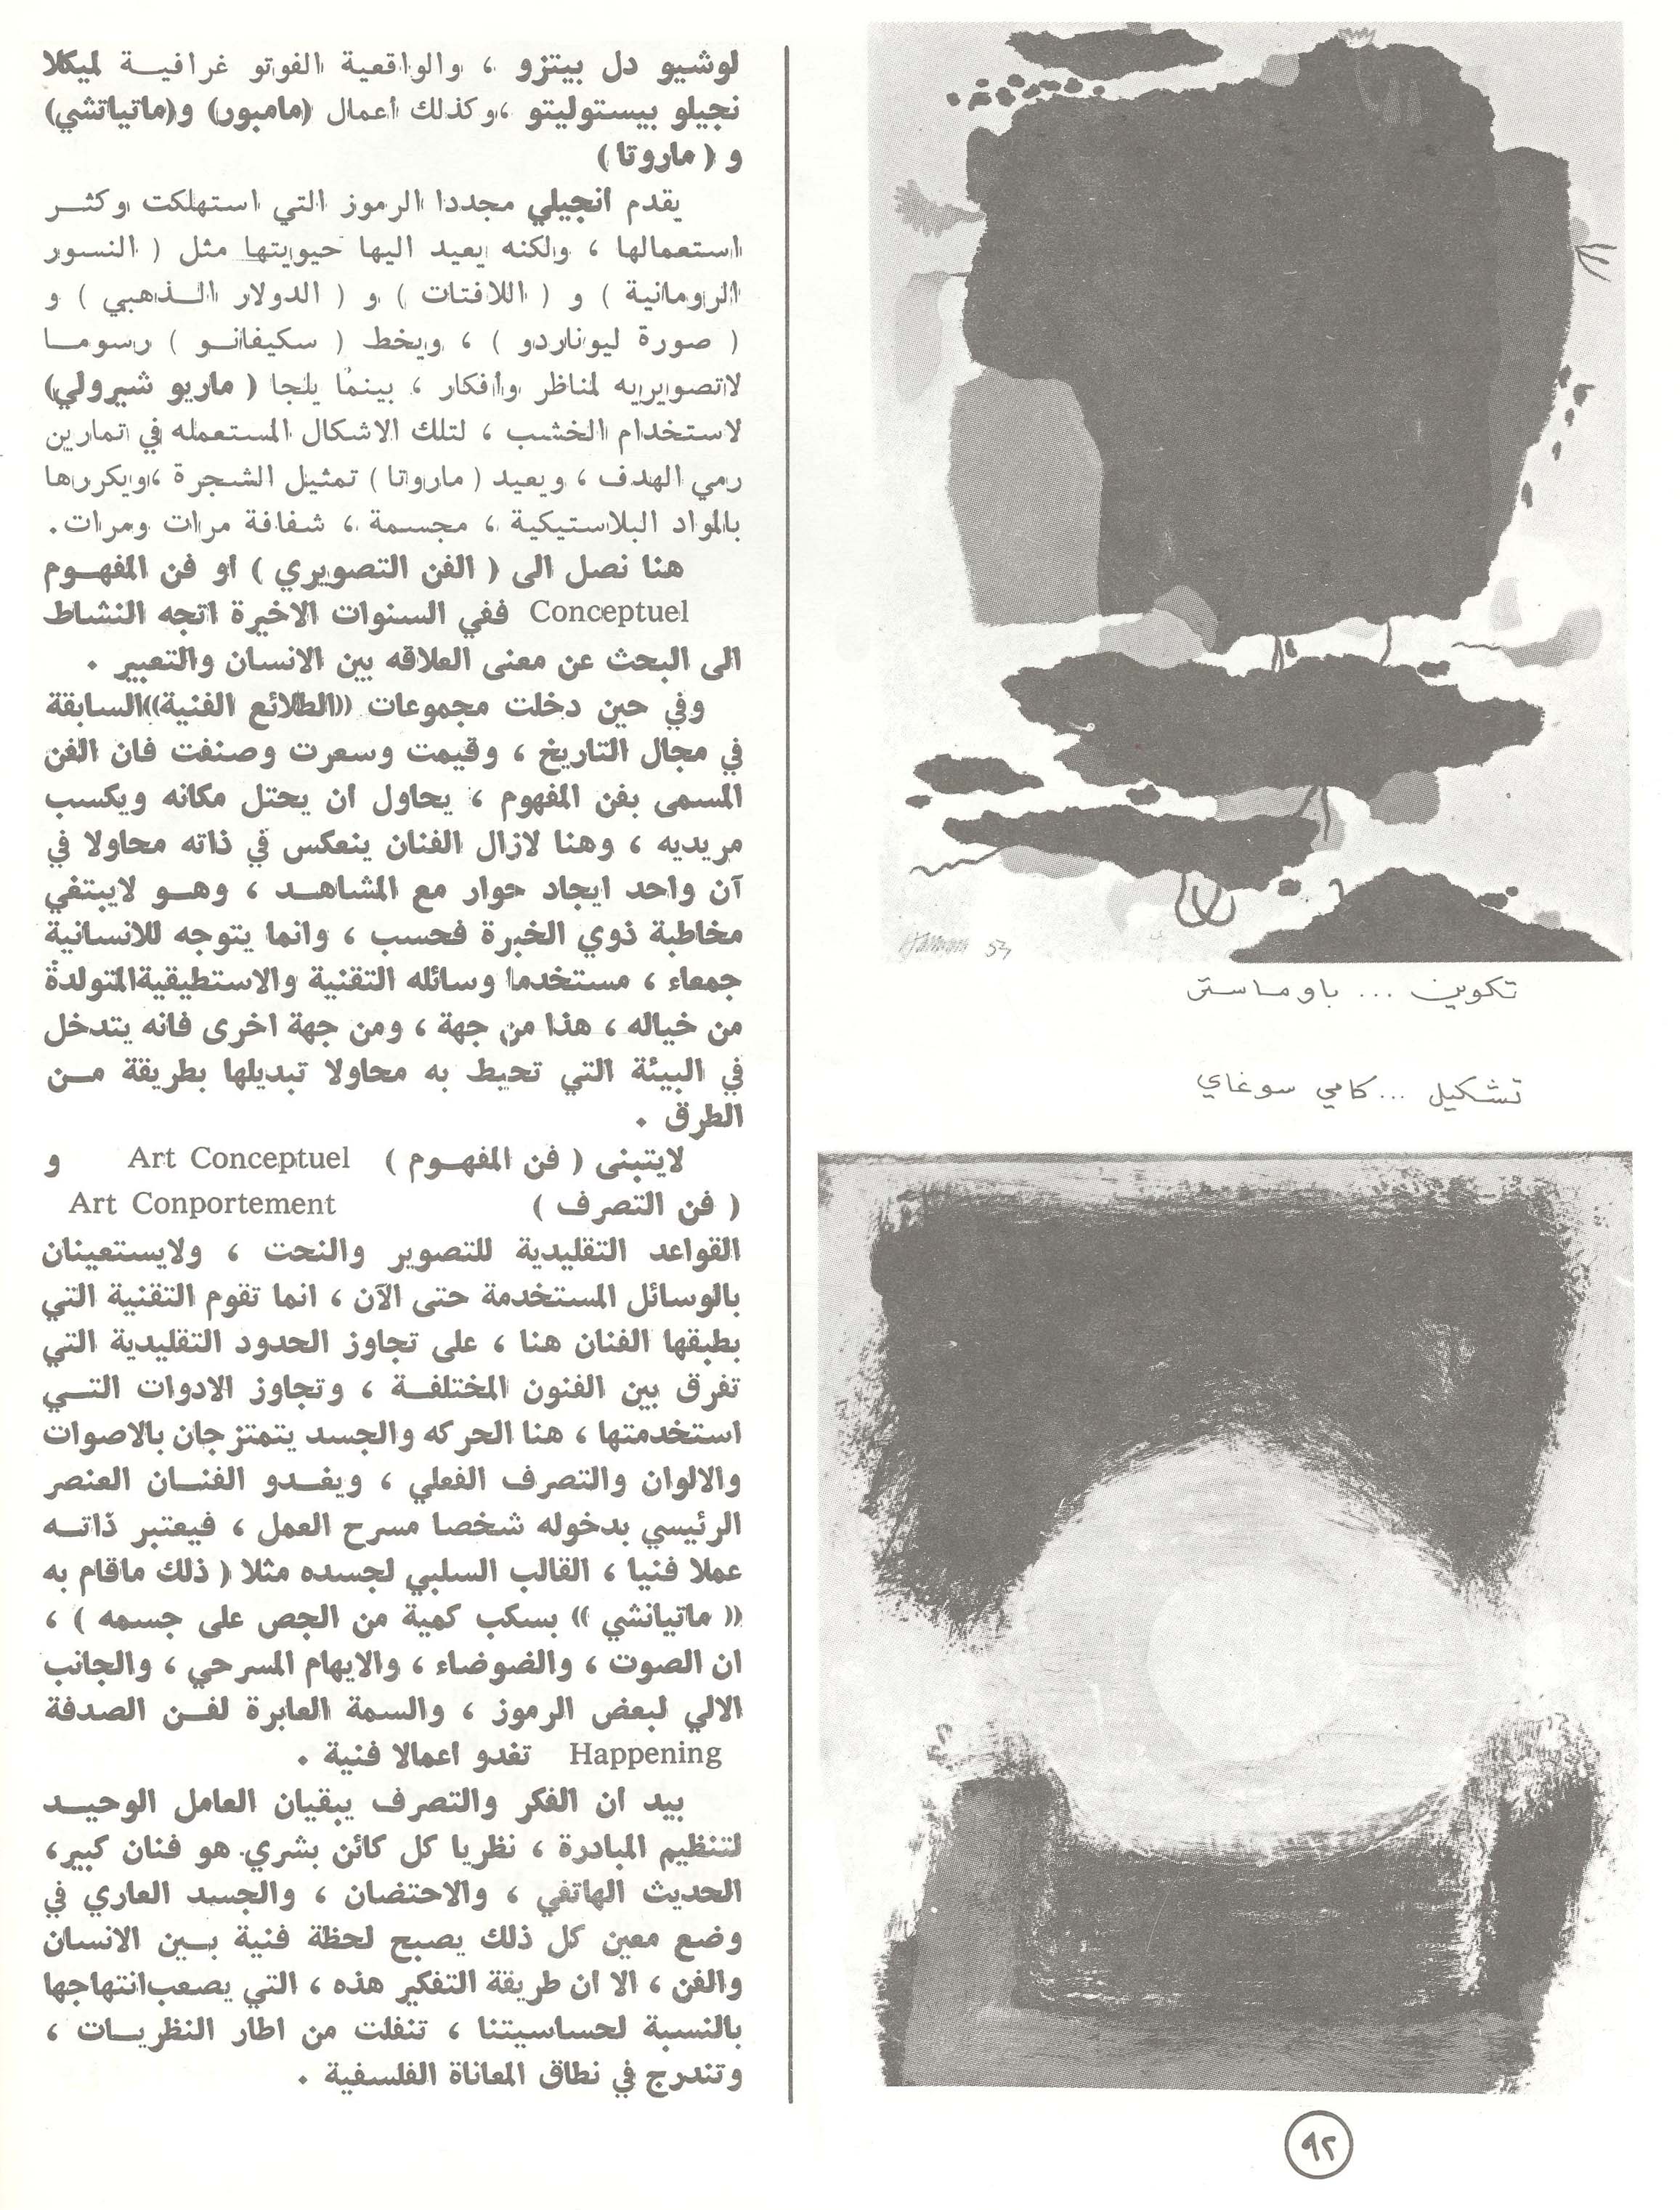 تكوين ... باوماستر
تشكيل ... كامي سوغاي
لوشيو دل بيتزو ، والواقعية الفوتو غرافيــة لميكلا
نجيلو بيستوليتو ،وكذلك أعمال (مامبور) و(ماتياتشي)
و ( ماروتا )
يقدم انجيلي مجددا الرموز التي استهلكت وكثــر
استعمالها ، ولكنه يعيد اليها حيويتها مثل ( النسور
الرومانية ) و ( اللافتات ) و ( الدولار الــذهبي ) و
( صورة ليوناردو ) ، ويخط ( سكيفانــو ) رسومــا
لاتصويريه لمناظر وأفكار ، بينما يلجا ( ماريو شيرولي)
لاستخدام الخشب ، لتلك الاشكال المستعمله في تمارين
رمي الهدف ، ويعيد ( ماروتا ) تمثيل الشجرة ،ويكررها
بالمواد البلاستيكية ، مجسمة ، شفافة مرات ومرات.
هنا نصل الى ( الفن التصويري ) او فن المفهــوم
Conceptuel ففي السنوات الاخيرة اتجه النشاط
الى البحث عن معنى العلاقه بين الانسان والتعبير .
وفي حين دخلت مجموعات ((الطلائع الفنية))السابقة
في مجال التاريخ ، وقيمت وسعرت وصنفت فان الفن
المسمى بفن المفهوم ، يحاول ان يحتل مكانه ويكسب
مريديه ، وهنا لازال الفنان ينعكس في ذاته محاولا في
آن واحد ايجاد حوار مع المشاهــد ، وهــو لايبتغي
مخاطبة ذوي الخبرة فحسب ، وانما يتوجه للانسانية
جمعاء ، مستخدما وسائله التقنية والاستطيقيةالمتولدة
من خياله ، هذا من جهة ، ومن جهة اخرى فانه يتدخل
في البيئة التي تحيط به محاولا تبديلها بطريقة مــن
الطرق .
لايتبنى ( فن المفهــوم ) Art Conceptuel و
( فن التصرف ) Art Conportement
القواعد التقليدية للتصوير والنحت ، ولايستعينان
بالوسائل المستخدمة حتى الآن ، انما تقوم التقنية التي
بطبقها الفنان هنا ، على تجاوز الحدود التقليدية التي
تفرق بين الفنون المختلفــة ، وتجاوز الادوات التــي
استخدمتها ، هنا الحركه والجسد يتمتزجان بالاصوات
والالوان والتصرف الفعلي ، ويغــدو الفنــان العنصر
الرئيسي بدخوله شخصا مسرح العمل ، فيعتبر ذاتــه
عملا فنيا ، القالب السلبي لجسده مثلا ( ذلك ماقام به
(( ماتيانشي )) بسكب كمية من الجص على جسمه ) ،
ان الصوت ، والضوضاء ، والايهام المسرحي ، والجانب
الالي لبعض الرموز ، والسمة العابرة لفــن الصدفة
Happening تغدو اعمالا فنية .
بيد ان الفكر والتصرف يبقيان العامل الوحيــد
لتنظيم المبادرة ، نظريا كل كائن بشري هو فنان كبير،
الحديث الهاتفي ، والاحتضان ، والجسد العاري في
وضع معين كل ذلك يصبح لحظة فنية بــين الانسان
والفن ، الا ان طريقة التفكير هذه ، التي يصعبانتهاجها
بالنسبة لحساسيتنا ، تنفلت من اطار النظريــات ،
وتندرج في نطاق المعاناة الفلسفية .
٩٢